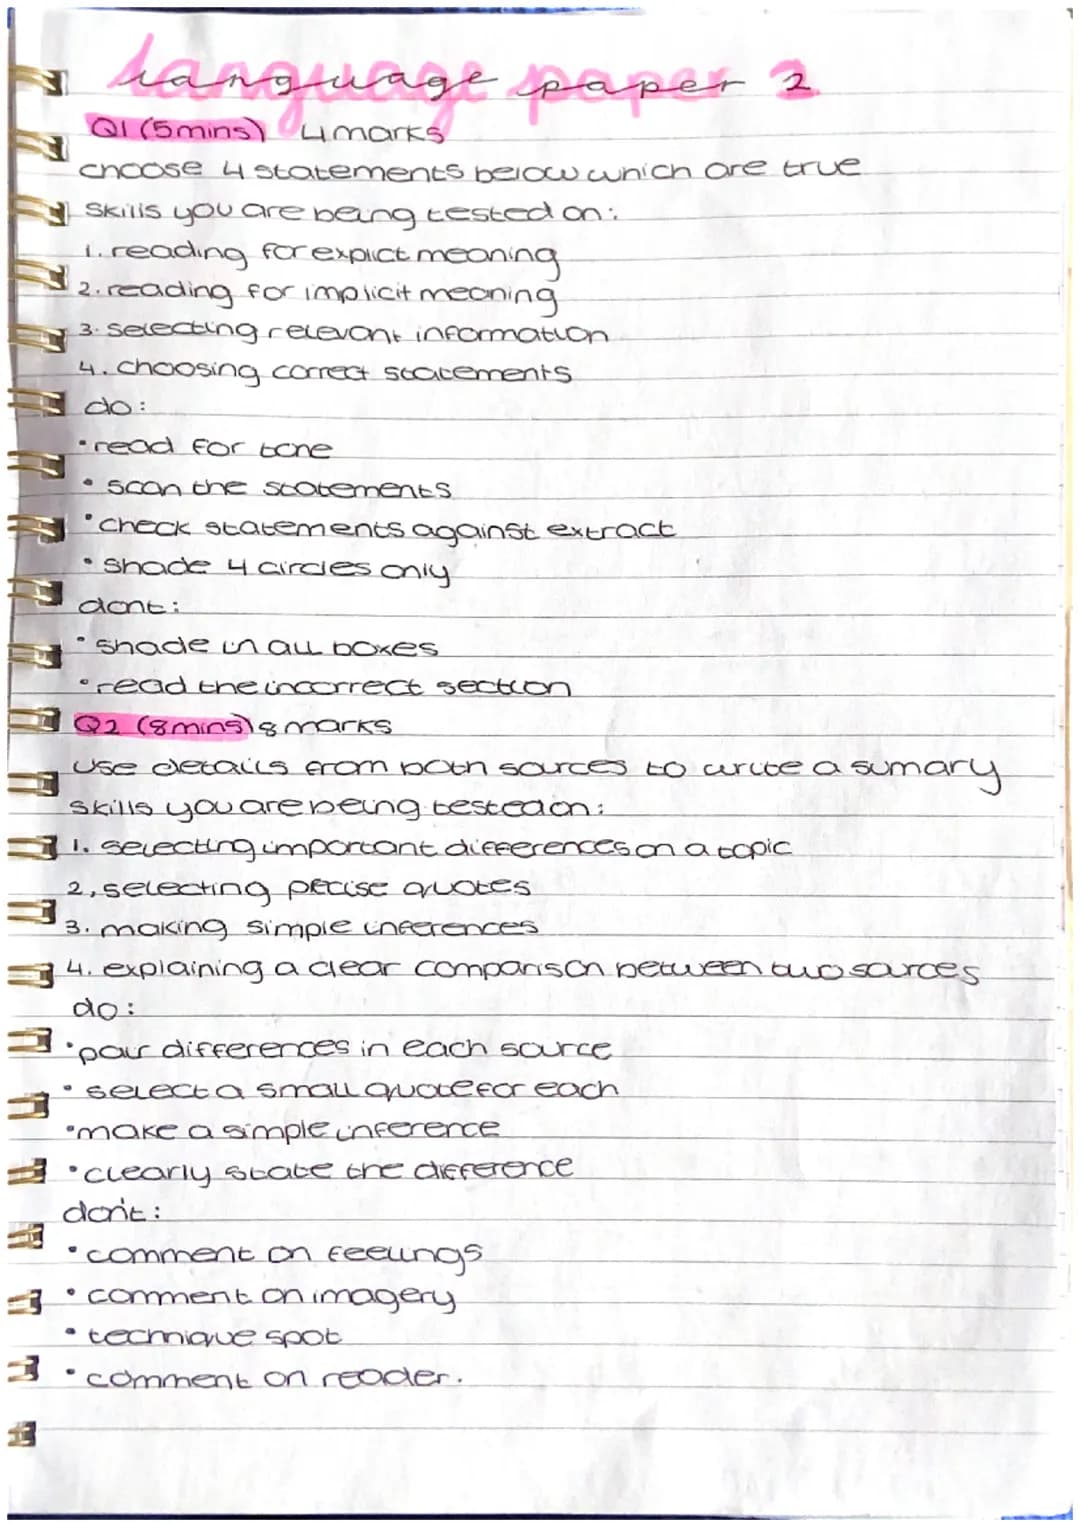 language paper 2
Q1 (5mins) 4 marks
choose 4 statements below which are true
skills you are being tested on:
1. reading for explict meaning
2. reading for implicit meaning
3. selecting relevant information
4. choosing correct statements
do:
• read for tone
• scan the statements
• check statements against extract
• shade 4 circles only
dont:
• shade in all boxes
• read the incorrect section
Q2 (8mins) 8 marks
use details from both sources to write a sumary
skills you are being tested on:
1. selecting important differences on a topic
2, selecting pecise quotes
3. making simple inferences
4. explaining a clear comparison between two sources
do:
• pair differences in each source
• select a small quote for each
• make a simple inference
• clearly state the difference
don't:
• comment on feelings
• comment on imagery
• technique spot
• comment on reader.